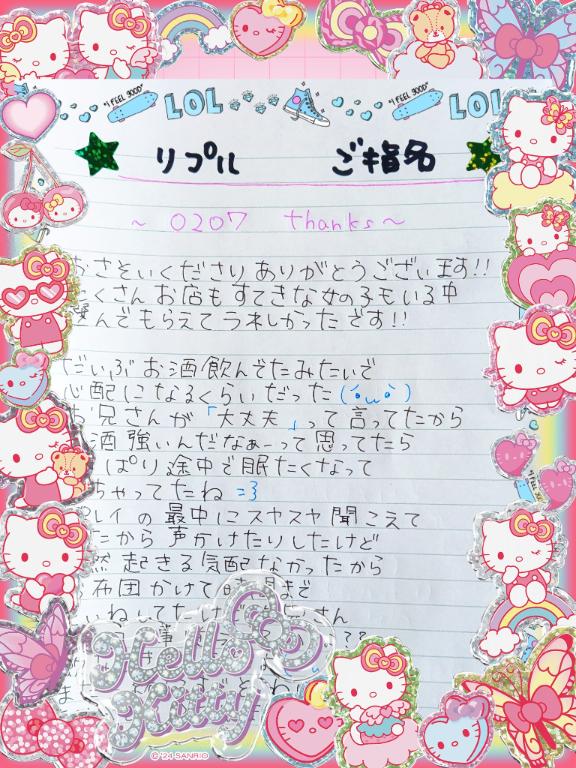 "I FEEL GOOD" LOL "I FEEL GOOD" LOL
リプル ご指名
～ 0207 thanks ～
おさそいくださりありがとうござい王す!!
くさんお店もすてきな女の子もいる中
んでもらえてうれしかったです!!
だいぶお酒飲んでたみたいで
配になるくらいだった
お兄さんが「大丈夫」って言ってたから
酒強いんだなぁーって思ってたら
ぱり途中で眠たくなって
ちゃってたね =3
レイの最中にスヤスヤ聞こえて
たから声かけたりしたけど
然起きる気配なかったから
布団かけて時間まで
いねしてたけど さん
Hello Kitty
© '24 SANRIO